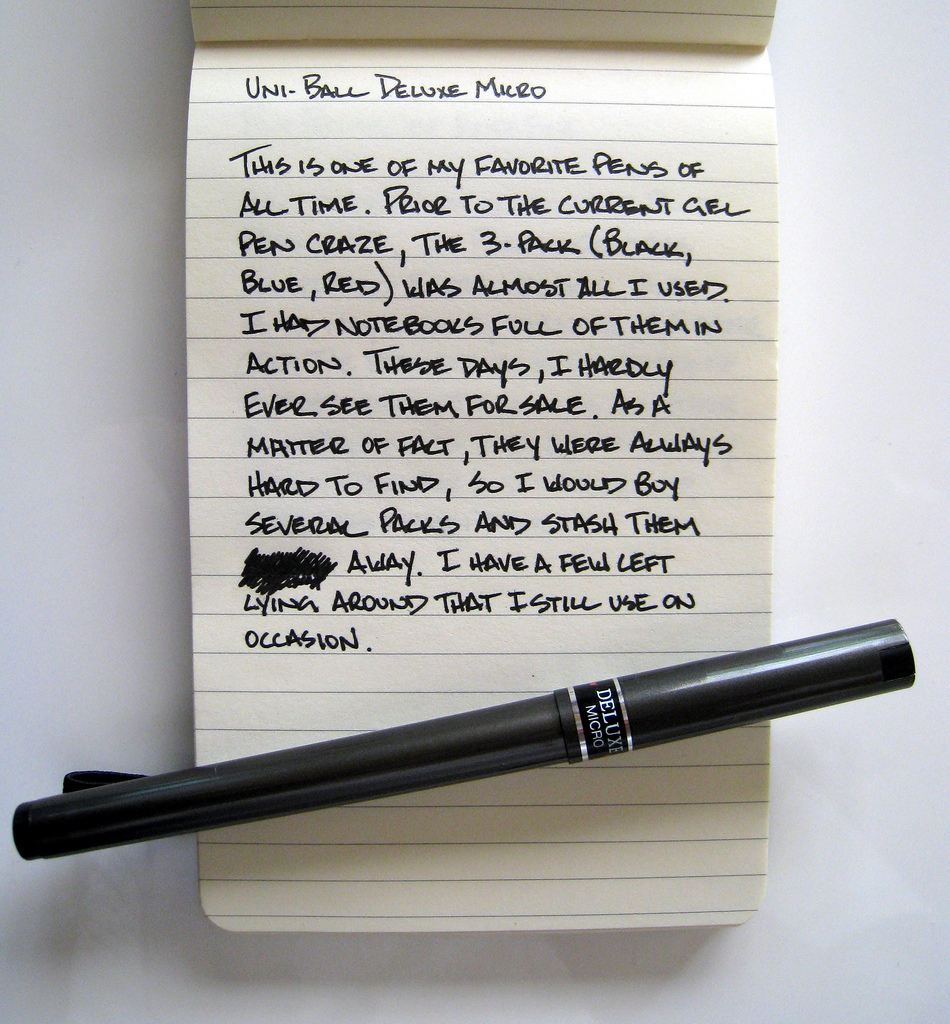 UNI-BALL DELUXE MICRO
THIS IS ONE OF MY FAVORITE PENS OF
ALL TIME. PRIOR TO THE CURRENT GEL
PEN CRAZE, THE 3-PACK (BLACK,
BLUE, RED) WAS ALMOST ALL I USED.
I HAD NOTEBOOKS FULL OF THEM IN
ACTION. THESE DAYS, I HARDLY
EVER SEE THEM FOR SALE. AS A
MATTER OF FACT, THEY WERE ALWAYS
HARD TO FIND, SO I WOULD BUY
SEVERAL PACKS AND STASH THEM
AWAY. I HAVE A FEW LEFT
LYING AROUND THAT I STILL USE ON
OCCASION.
DELUXE
MICRO